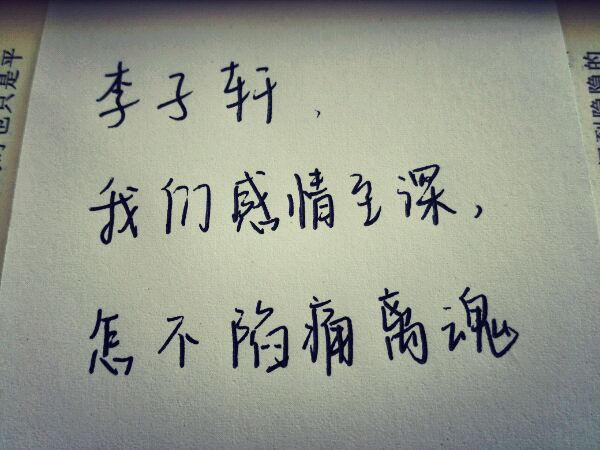 李子轩，
我们感情至深，
怎不陷痛离魂
也只是平
到隐隐的